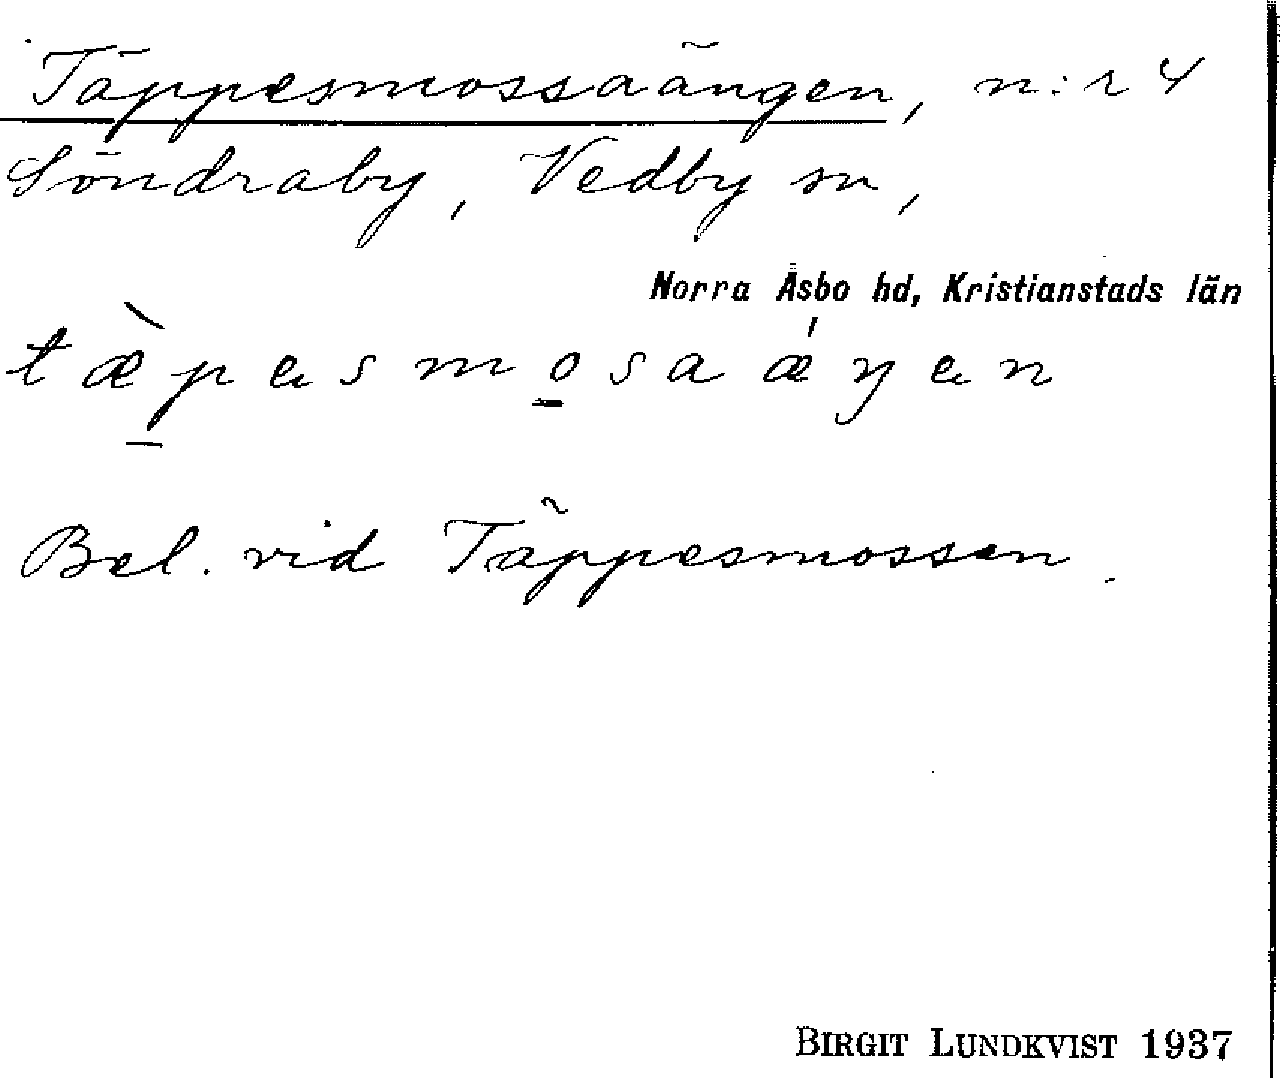 Täppesmossaängen, n:r 4
Söndraby, Vedby sn,
Norra Åsbo hd, Kristianstads län
tæ̀pesmo̱saǽŋen
Bel. vid Täppesmossen.
BIRGIT LUNDKVIST 1937